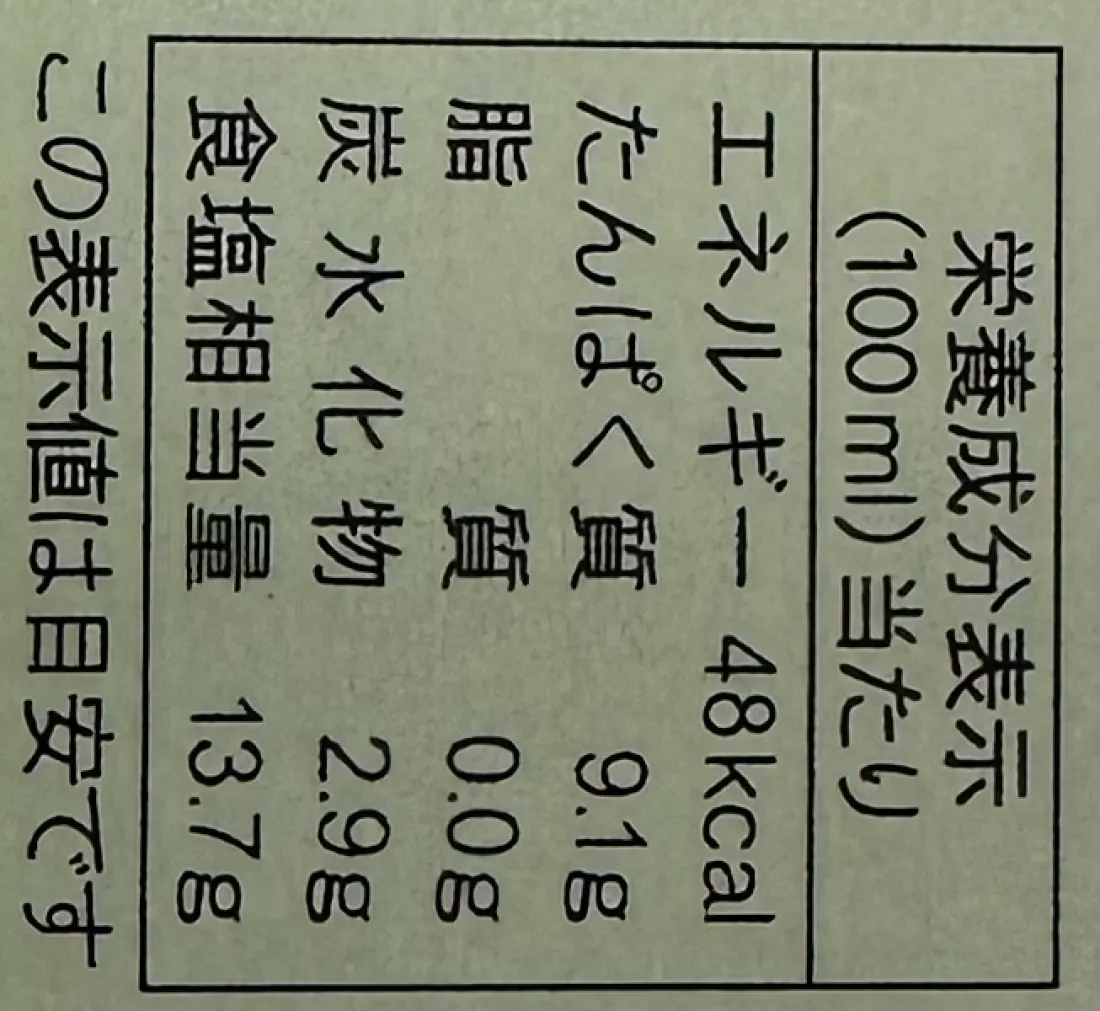 栄養成分表示
(100ml)当たり
エネルギー 48kcal
たんぱく質 9.1g
脂質 0.0g
炭水化物 2.9g
食塩相当量 13.7g
この表示値は目安です